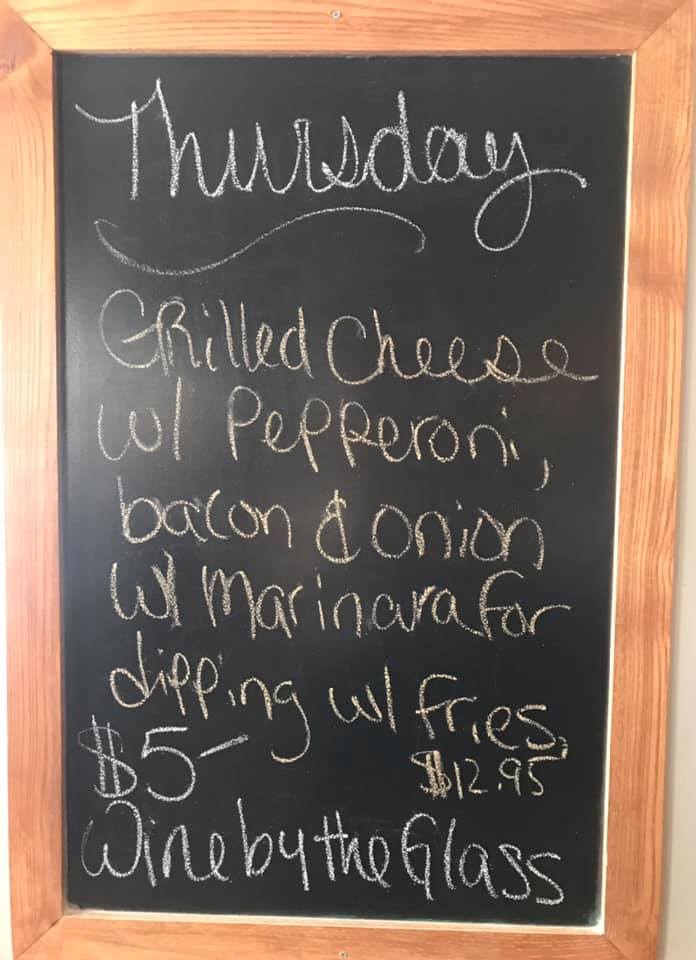 Thursday
Grilled Cheese
w/ Pepperoni,
bacon & onion
w/ Marinara for
dipping w/ fries.
$12.95
$5-
Wine by the Glass